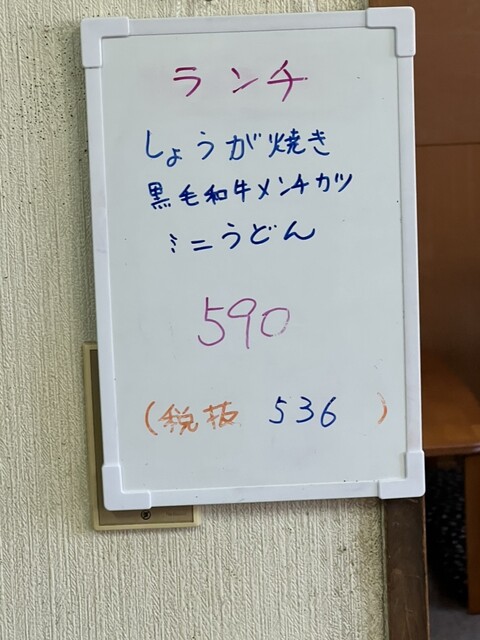 ランチ
しょうが焼き
黒毛和牛メンチカツ
ミニうどん
590
(税抜 536)